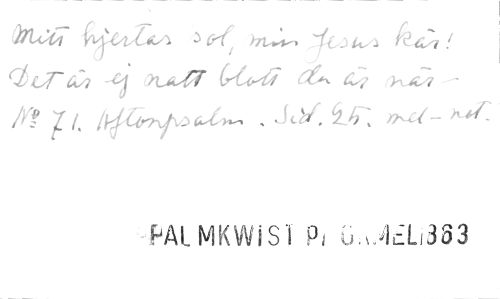 Mitt hjertas sol, min Jesus kär!
Det är ej natt blott du är när
No 71. Aftonpsalm. Sid. 25. mel-not.
PALMKWIST P